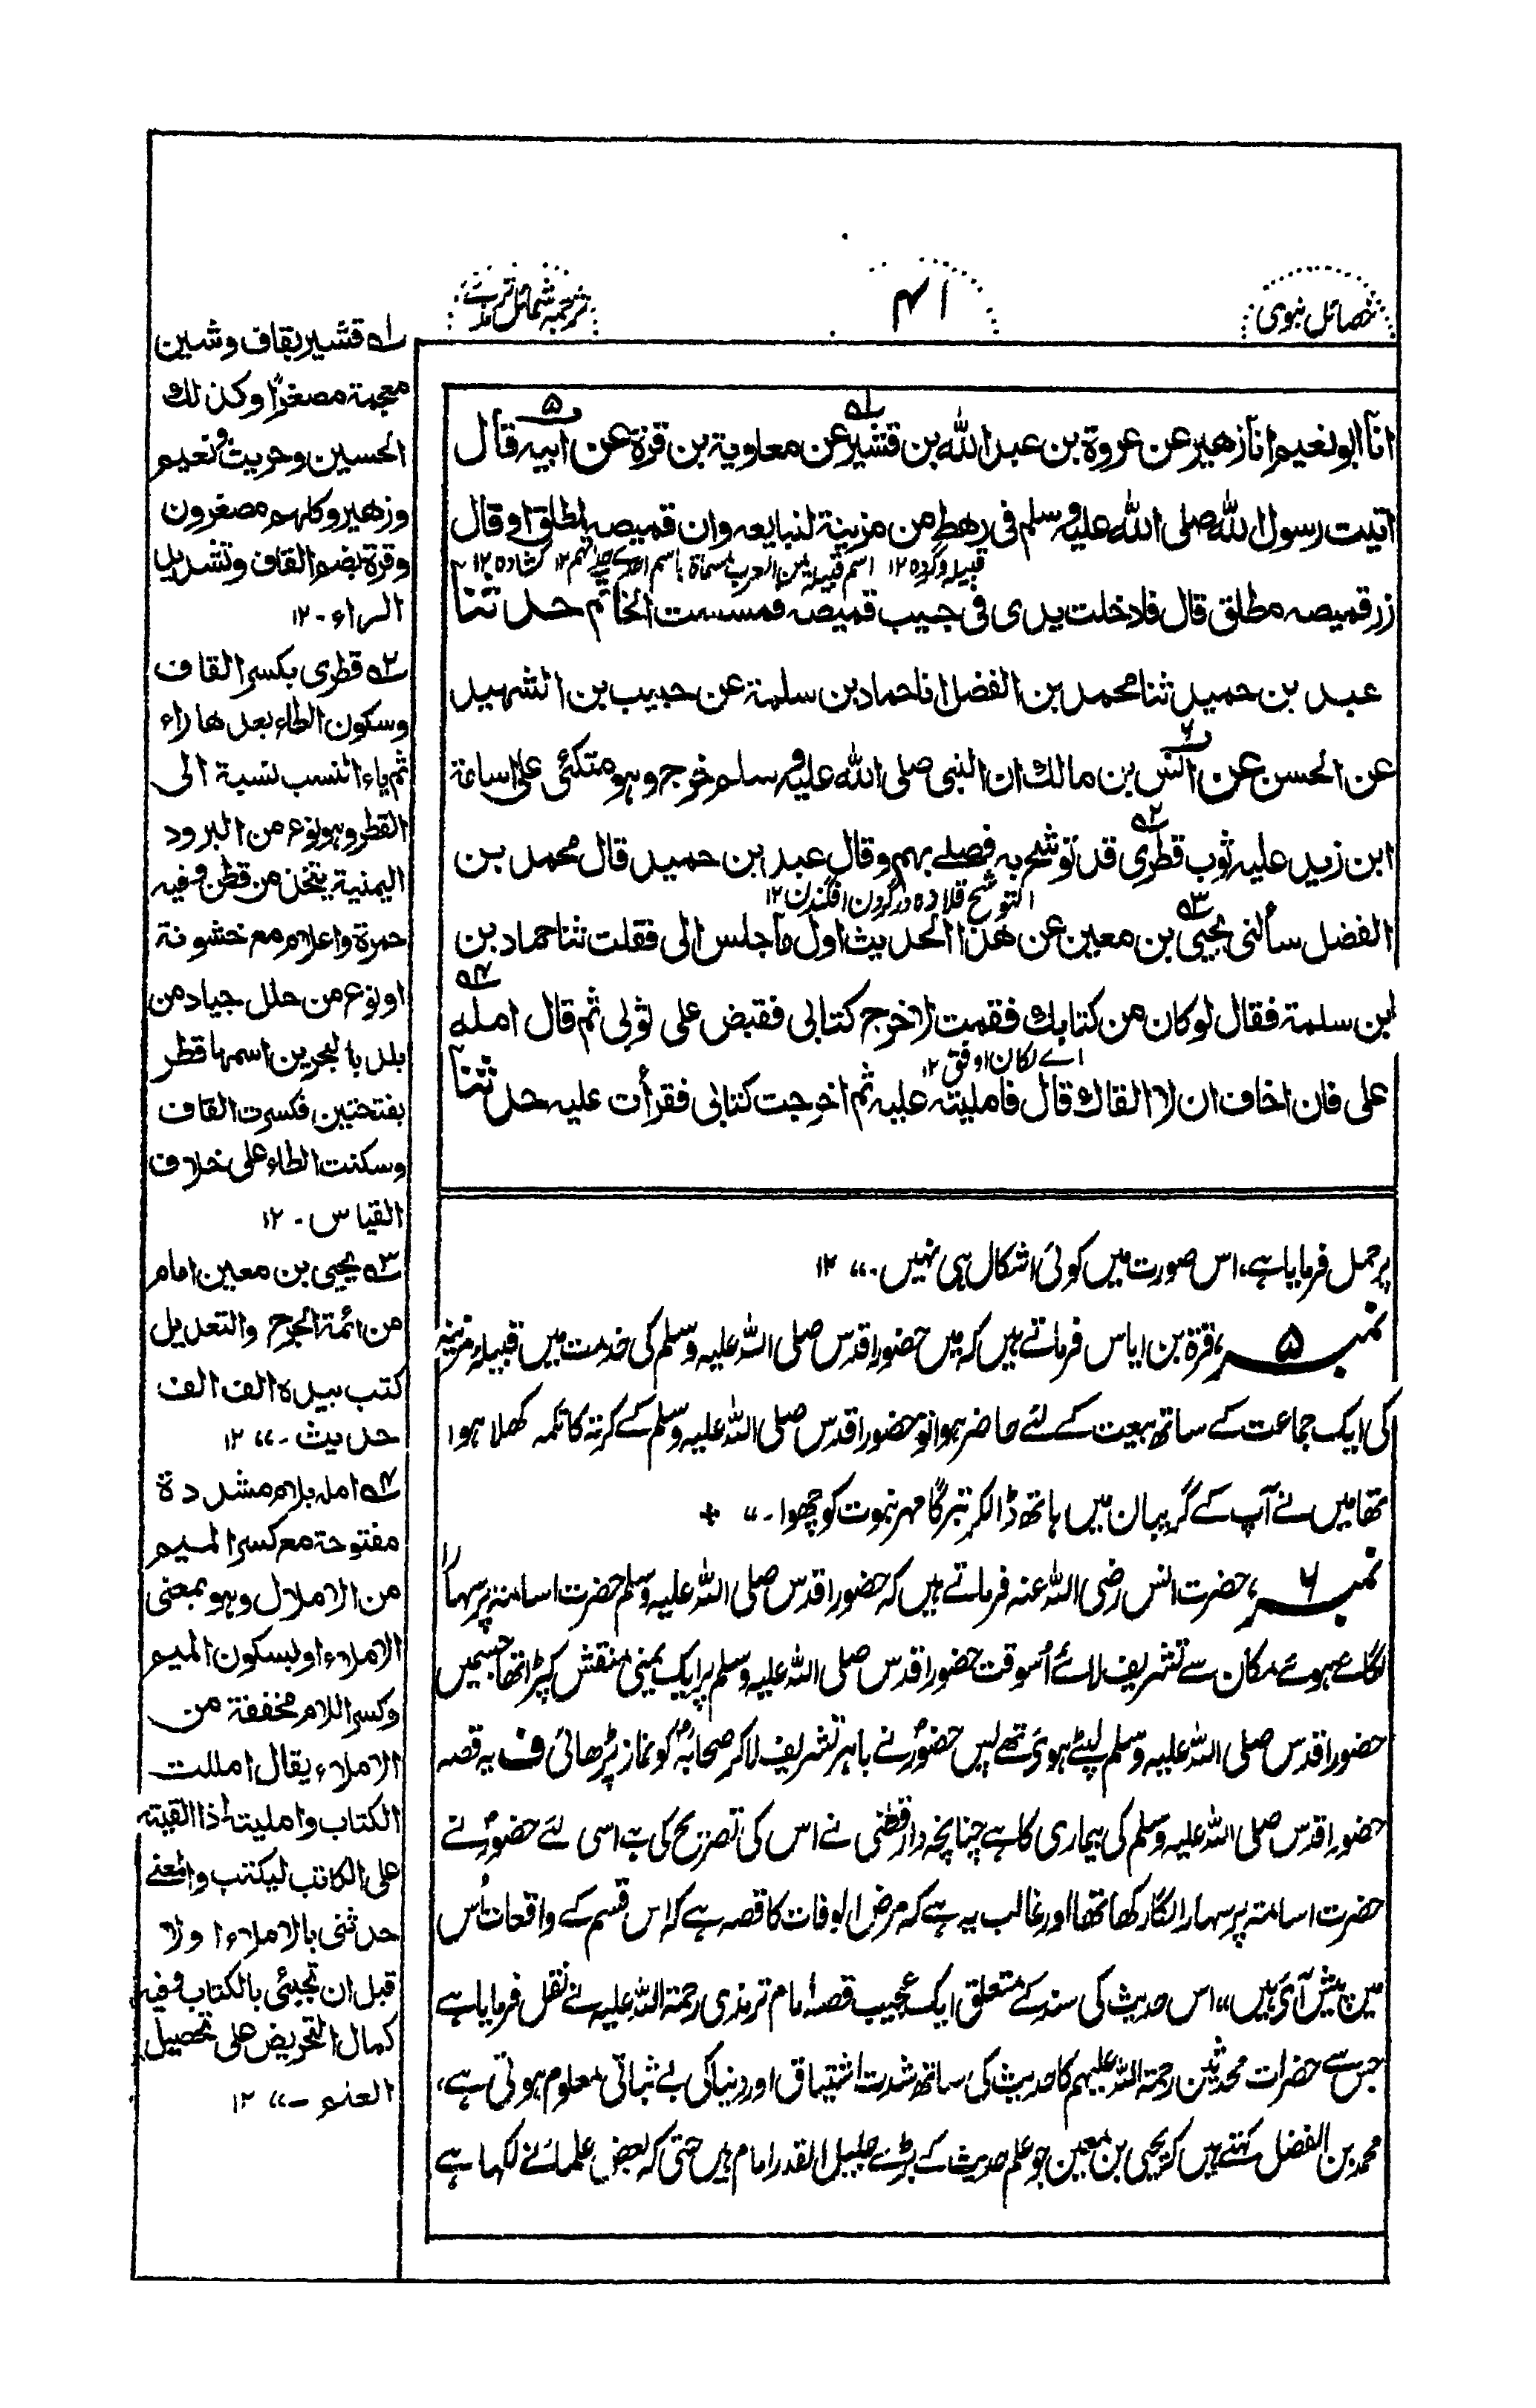 خصائل نبوی
۴۱
ترجمہ شمائل ترمذی
انا ابو نعيم انا زهير عن عروة بن عبد الله بن قشير عن معاوية بن قرة عن ابيه قال
اتيت رسول الله صلى الله عليه وسلم فى رهط من مزينة لنبايعه وان قميصه لمطلق او قال
قبیلہ وگروہ ۱۲ اسم قبيلة من العرب مسماة باسم ۱۲ کشادہ ۱۲
زر قميصه مطلق قال فادخلت يدى فى جيب قميصه فمسست الخاتم حدثنا
عبد بن حميد ثنا محمد بن الفضل انا حماد بن سلمة عن حبيب بن الشهيد
عن الحسن عن انس بن مالك ان النبى صلى الله عليه وسلم خرج وهو متكئى على اسامة
ابن زيد عليه ثوب قطرى قد توشح به فصلى بهم وقال عبد ابن حميد قال محمد بن
التوشح قلادہ در گردن افگندن ۱۲
الفضل سألنى يحيى بن معين عن هذا الحديث اول ما جلس الى فقلت ثنا حماد بن
ابن سلمة فقال لو كان من كتابك فقمت لاخرج كتابى فقبض على ثوبى ثم قال امله
اے لكان اوفق ۱۲
على فان اخاف ان لا القاك قال فامليته عليه ثم اخرجت كتابى فقرأت عليه حدثنا
پر حمل فرمایا ہے، اس صورت میں کوئی اشکال ہی نہیں۔ ،، ۱۲
نمبر ۵، قرۃ بن ایاس فرماتے ہیں کہ میں حضور اقدس صلی اللہ علیہ وسلم کی خدمت میں قبیلہ مزینہ
کی ایک جماعت کے ساتھ بیعت کے لئے حاضر ہوا تو حضور اقدس صلی اللہ علیہ وسلم کے کرتہ کا تکمہ کھلا ہوا
تھا میں نے آپ کے گریبان میں ہاتھ ڈالکر تبرکا مہر نبوت کو چھوا۔ ،،
نمبر ۶، حضرت انس رضی اللہ عنہ فرماتے ہیں کہ حضور اقدس صلی اللہ علیہ وسلم حضرت اسامۃ پر سہارا
لگائے ہوئے مکان سے تشریف لائے اُسوقت حضور اقدس صلی اللہ علیہ وسلم پر ایک یمنی منقش کپڑا تھا جسمیں
حضور اقدس صلی اللہ علیہ وسلم لپٹے ہوئے تھے پس حضورؐ نے باہر تشریف لا کر صحابہؓ کو نماز پڑھائی ف یہ قصہ
حضور اقدس صلی اللہ علیہ وسلم کی بیماری کا ہے چنانچہ دارقطنی نے اس کی تصریح کی ہے اسی لئے حضورؐ نے
حضرت اسامۃ پر سہارا لگا رکھا تھا اور غالب یہ ہے کہ مرض الوفات کا قصہ ہے کہ اس قسم کے واقعات اُس
میں پیش آئے ہیں،، اس حدیث کی سند کے متعلق ایک عجیب قصہ امام ترمذی رحمۃ اللہ علیہ نے نقل فرمایا ہے
جس سے حضرات محدثین رحمۃ اللہ علیہم کا حدیث کی ساتھ شدت اشتیاق اور دنیا کی بے ثباتی معلوم ہوتی ہے،
محمد بن الفضل کہتے ہیں کہ یحیی بن معین جو علم حدیث کے بڑے جلیل القدر امام ہیں حتی کہ بعض علمائے لکھا ہے
۱ قشير بقاف وشين
معجمة مصغرا وكذلك
الحسين وحريث ونعيم
وزهير وكلهم مصغرون
وقرة بضم القاف وتشديد
الراء۔ ۱۲
۲ قطرى بكسر القاف
وسكون الطاء بعدها راء
ثم ياء النسب نسبة الى
القطر وهو نوع من البرود
اليمنية يتخذ من قطن وفيه
حمرة واعلام مع خشونة
او نوع من حلل جياد من
بلد بالبحرين اسمها قطر
بفتحتين فكسرت القاف
وسكنت الطاء على خلاف
القياس۔ ۱۲
۳ يحيى بن معين امام
من ائمة الجرح والتعديل
كتب بيده الف الف
حديث۔ ،، ۱۲
۴ امله بلام مشددة
مفتوحة مع كسر الميم
من الاملال وهو بمعنى
الاملاء او بسكون الميم
وكسر اللام مخففة من
الاملاء يقال امللت
الكتاب وامليته اذا القيته
على الكاتب ليكتب والمعنے
حدثنى بالاملاء اولا
قبل ان تجئى بالكتاب وفيه
كمال التحريض على تحصيل
العلم ۔،، ۱۲